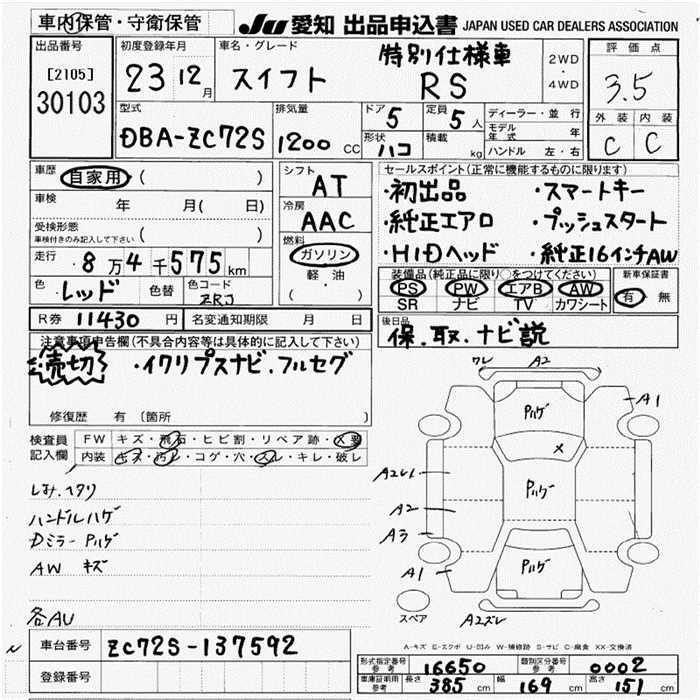 車内保管・守衛保管
JU 愛知 出品申込書 JAPAN USED CAR DEALERS ASSOCIATION
出品番号
[2105]
30103
初度登録年月
23 12月
車名・グレード
スイフト
特別仕様車
RS
2WD
・
4WD
評価点
3.5
外装 内装
C C
型式
DBA-ZC72S
排気量
1200 CC
ドア 5
定員 5 人
形状 ハコ
積載 kg
ディーラー・並行
モデル年式 年
ハンドル 左・右
車歴 自家用 ( )
車検 年 月( 日)
受検形態
車検付きのみ記入して下さい ( )
走行 8万4千575km
色 レッド 色替 色コード ZRJ
シフト AT
冷房 AAC
燃料
ガソリン
軽・油
( )
セールスポイント(正常に機能するものに限ります)
・初出品 ・スマートキー
・純正エアロ ・プッシュスタート
・HIDヘッド ・純正16インチAW
装備品(純正品に限り○をつけてください) 新車保証書
PS PW エアB AW
SR ナビ TV カワシート
有 無
R券 11430 円 名変通知期限 月 日
後日品
保.取.ナビ説
注意事項申告欄(不具合内容等は具体的に記入して下さい)
売切 ・イクリプスナビ.フルセグ
修復歴 有 (箇所 )
検査員記入欄
FW キズ・飛石・ヒビ割・リペア跡・X要
内装 キズ・汚レ・コゲ・穴・スレ・キレ・破レ
しみ.ヘタリ
ハンドルハゲ
Dミラー Pハゲ
AW キズ
各AU
ワレ A2
A1
Pハゲ
X
Pハゲ
A2
Aラ
A1
Pハゲ
スペア
A2ズレ
A-キズ E-エクボ U-凹み W-補修跡 S-サビ C-腐食 XX-交換済
車台番号 ZC72S-137592
登録番号
形式指定番号 参考 16650 類別区分番号 参考 0002
車庫証明用 参考 長さ 385 cm 幅 169 cm 高さ 151 cm